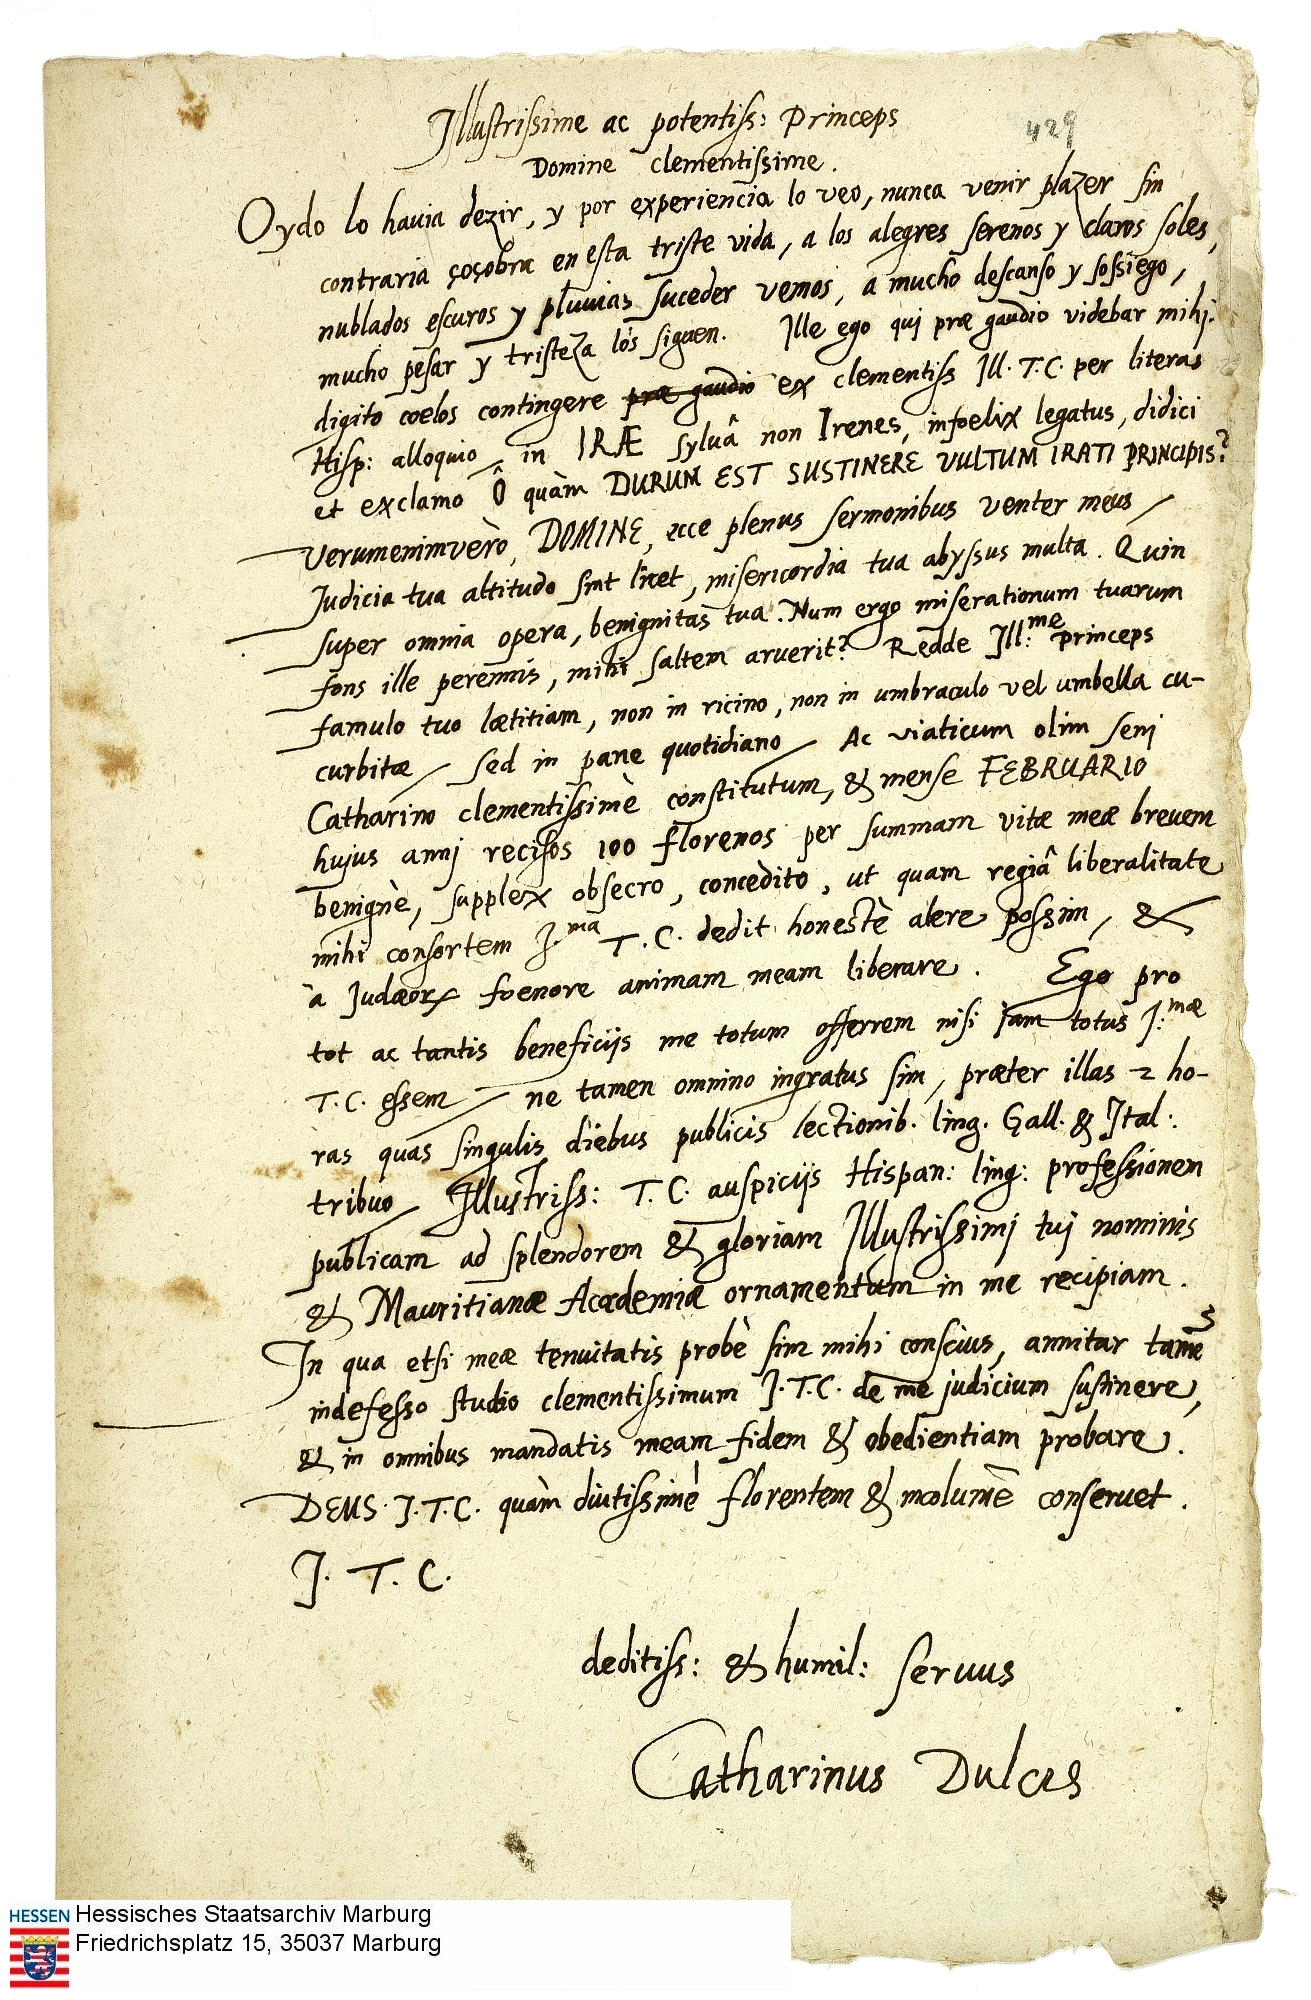 429
Illustrissime ac potentiss: Princeps
Domine clementissime.
Oydo lo hauia dezir, y por experiencia lo veo, nunca venir plazer sin
contraria çoçobra en esta triste vida, a los alegres serenos y claros soles,
nublados escuros y pluuias suceder vemos, a mucho descanso y sossiego,
mucho pesar y tristeza los siguen. Ille ego qui præ gaudio videbar mihi
digito coelos contingere præ gaudio ex clementiss Ill. T.C. per literas
Hisp: alloquio, in IRÆ syluâ non Irenes, infoelix legatus, didici
et exclamo Ô quàm DURUM EST SUSTINERE VULTUM IRATI PRINCIPIS?
Verumenimverò, DOMINE, ecce plenus sermonibus venter meus
Judicia tua altitudo sint licet, misericordia tua abyssus multa. Quin
super omnia opera, benignitas tua. Num ergo miserationum tuarum
fons ille perennis, mihi saltem aruerit? Redde Ill:me princeps
famulo tuo lætitiam, non in ricino, non in umbraculo vel umbella cu-
curbitæ, sed in pane quotidiano. Ac viaticum olim senj
Catharino clementissimè constitutum, & mense FEBRUARIO
hujus annj recisos 100 florenos per summam vitæ meæ brevem
benignè, supplex obsecro, concedito, ut quam regiâ liberalitate
mihi consortem I.ma T.C. dedit honestè alere possim, &
à Judæorꝝ foenore animam meam liberare. Ego pro
tot ac tantis beneficijs me totum offerrem nisi jam totus I:mæ
T.C. essem, ne tamen omnino ingratus sim, præter illas 2 ho-
ras quas singulis diebus publicis lectionib. ling. Gall. & Ital:
tribuo, Illustriss: T.C. auspicijs Hispan: ling: professionem
publicam ad splendorem & gloriam Illustrissimj tuj nominis
& Mauritianæ Academiæ ornamentum in me recipiam.
In qua etsi meæ tenuitatis probè sim mihi conscius, annitar tamẽ
indefesso studio clementissimum I.T.C. de me judicium sustinere,
& in omnibus mandatis meam fidem & obedientiam probare.
DEUS I.T.C. quàm diutissimè florentem & incolumē conseruet.
I. T. C.
deditiss: & humil: seruus
Catharinus Dulcis
HESSEN Hessisches Staatsarchiv Marburg
Friedrichsplatz 15, 35037 Marburg